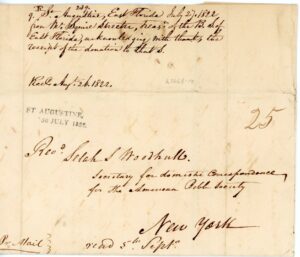 St. Augustine, East Florida July 27, 1822
from
East Florida, acknowledging with thanks the
receipt of the donation to that S.
Rec'd Aug. 26. 1822.
ST. AUGUSTINE,
30 JULY 1822.
25
Rev.d Selah S Woodhull
Secretary for domestic Correspondence
for the American Bible Society
New York
read 5th Sept.
Pr Mail